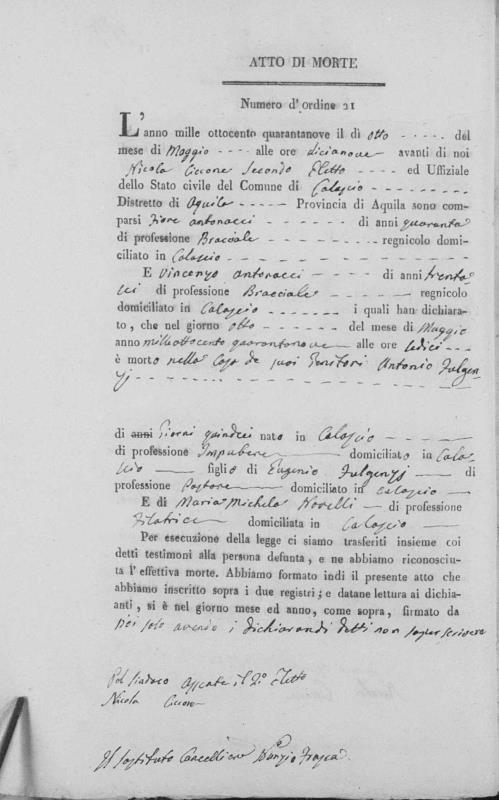 ATTO DI MORTE
Numero d'ordine 21
L'anno mille ottocento quarantanove il dì otto - - - - - del
mese di Maggio - - - - alle ore dicianove avanti di noi
Nicola Ciccone Secondo Eletto - - - - ed Uffiziale
dello Stato civile del Comune di Calascio - - - - - - - -
Distretto di Aquila - - - - - Provincia di Aquila sono com-
parsi Fiore Antonacci - - - - - - - di anni quaranta
di professione Bracciale - - - - - - - - - regnicolo domi-
ciliato in Calascio - - - - - - - - - - - - - - -
E Vincenzo Antonacci - - - - - di anni trenta
sei di professione Bracciale - - - - - - - regnicolo
domiciliato in Calascio - - - - - - - i quali han dichiara-
to, che nel giorno otto - - - - - - del mese di Maggio
anno milleottocento quarantanove - alle ore sedici - - -
è morto nella Casa de suoi Genitori Antonio Fulgen-
zj - - - - - - - - - - - - - - - - - - -
di anni Giorni quindici nato in Calascio - - - -
di professione Impubere domiciliato in Cala-
scio figlio di Eugenio Fulgenzj di
professione Pastore domiciliato in Calascio
E di Maria Michela Novelli - di professione
Filatrice domiciliata in Calascio
Per esecuzione della legge ci siamo trasferiti insieme coi
detti testimoni alla persona defunta, e ne abbiamo riconosciu-
ta l'effettiva morte. Abbiamo formato indi il presente atto che
abbiamo inscritto sopra i due registri; e datane lettura ai dichia-
anti, si è nel giorno mese ed anno, come sopra, firmato da
Noi solo avendo i dichiaranti detti non saper scrivere
Pel Sindaco il 2.o Eletto
Nicola Ciccone
Il Sostituto Cancelliere Frasca